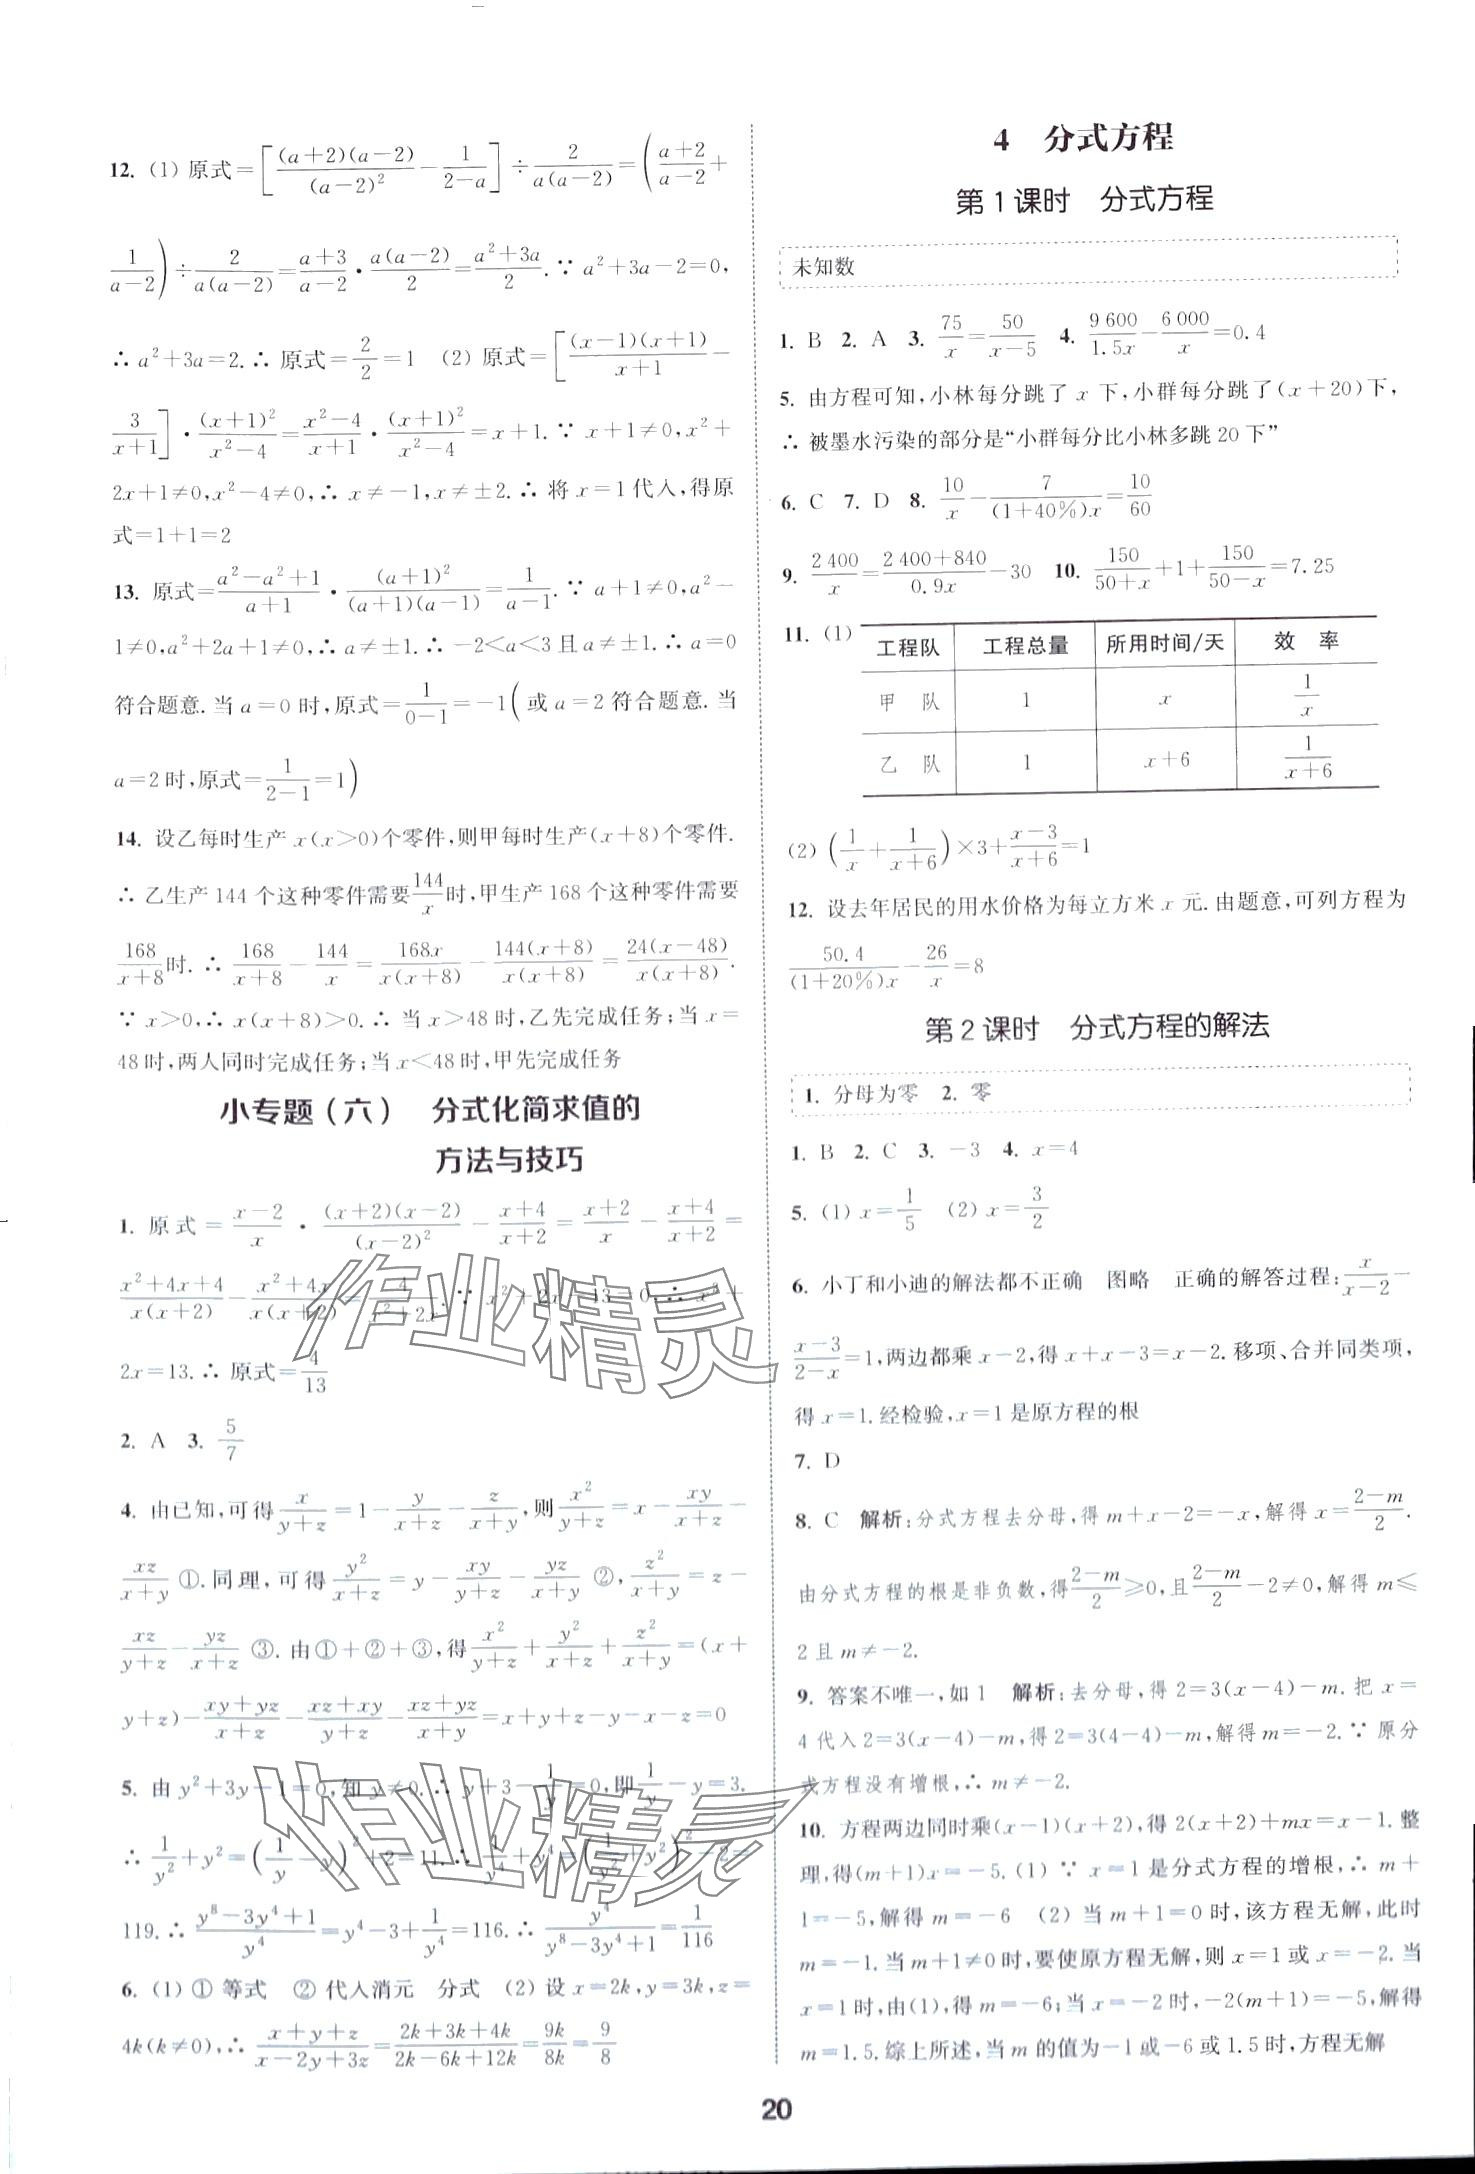 12. (1) 原式=[(a+2)(a-2)/(a-2)²-1/(2-a)]÷2/(a(a-2))=((a+2)/(a-2)+
1/(a-2))÷2/(a(a-2))=(a+3)/(a-2)·a(a-2)/2=(a²+3a)/2.∵ a²+3a-2=0,
∴ a²+3a=2.∴ 原式=2/2=1 (2) 原式=[(x-1)(x+1)/(x+1)-
3/(x+1)]·(x+1)²/(x²-4)=(x²-4)/(x+1)·(x+1)²/(x²-4)=x+1.∵ x+1≠0,x²+
2x+1≠0,x²-4≠0,∴ x≠-1,x≠±2.∴ 将 x=1代入,得原
式=1+1=2
13. 原式=(a²-a²+1)/(a+1)·(a+1)²/((a+1)(a-1))=1/(a-1).∵ a+1≠0,a²-
1≠0,a²+2a+1≠0,∴ a≠±1.∴ -2<a<3且a≠±1.∴ a=0
符合题意.当 a=0 时,原式=1/(0-1)=-1(或 a=2 符合题意.当
a=2时,原式=1/(2-1)=1)
14. 设乙每时生产 x(x>0)个零件,则甲每时生产(x+8)个零件.
∴ 乙生产 144 个这种零件需要144/x时,甲生产 168 个这种零件需要
168/(x+8)时.∴ 168/(x+8)-144/x=168x/(x(x+8))-144(x+8)/(x(x+8))=24(x-48)/(x(x+8)).
∵ x>0,∴ x(x+8)>0.∴ 当 x>48 时,乙先完成任务;当 x=
48时,两人同时完成任务;当 x<48时,甲先完成任务
小专题(六) 分式化简求值的
方法与技巧
1. 原式=(x-2)/x·(x+2)(x-2)/(x-2)²-(x+4)/(x+2)=(x+2)/x-(x+4)/(x+2)=
(x²+4x+4)/(x(x+2))-(x²+4x)/(x(x+2))=4/(x²+2x).∵ x²+2x-13=0,∴ x²+
2x=13.∴ 原式=4/13
2. A 3. 5/7
4. 由已知,可得x/(y+z)=1-y/(x+z)-z/(x+y),则x²/(y+z)=x-xy/(x+z)-
xz/(x+y) ①.同理,可得y²/(x+z)=y-xy/(y+z)-yz/(x+y) ②,z²/(x+y)=z-
xz/(y+z)-yz/(x+z) ③.由①+②+③,得x²/(y+z)+y²/(x+z)+z²/(x+y)=(x+
y+z)-(xy+yz)/(x+z)-(xz+xy)/(y+z)-(xz+yz)/(x+y)=x+y+z-y-x-z=0
5. 由 y²+3y-1=0,知 y≠0.∴ y+3-1/y=0,即1/y-y=3.
∴ 1/y²+y²=(1/y-y)²+2=11.∴ 1/y⁴+y⁴=(1/y²+y²)²-2=
119.∴ (y⁸-3y⁴+1)/y⁴=y⁴-3+1/y⁴=116.∴ y⁴/(y⁸-3y⁴+1)=1/116
6. (1) ① 等式 ② 代入消元 分式 (2) 设 x=2k,y=3k,z=
4k(k≠0),∴ (x+y+z)/(x-2y+3z)=(2k+3k+4k)/(2k-6k+12k)=9k/8k=9/8
4 分式方程
第1课时 分式方程
未知数
1. B 2. A 3. 75/x=50/(x-5) 4. 9 600/1.5x-6 000/x=0.4
5. 由方程可知,小林每分跳了 x 下,小群每分跳了(x+20)下,
∴ 被墨水污染的部分是“小群每分比小林多跳20下”
6. C 7. D 8. 10/x-7/((1+40%)x)=10/60
9. 2 400/x=(2 400+840)/0.9x-30 10. 150/(50+x)+1+150/(50-x)=7.25
11. (1) 工程队 工程总量 所用时间/天 效 率
甲 队 1 x 1/x
乙 队 1 x+6 1/(x+6)
(2) (1/x+1/(x+6))×3+(x-3)/(x+6)=1
12. 设去年居民的用水价格为每立方米 x 元.由题意,可列方程为
50.4/((1+20%)x)-26/x=8
第2课时 分式方程的解法
1. 分母为零 2. 零
1. B 2. C 3. -3 4. x=4
5. (1) x=1/5 (2) x=3/2
6. 小丁和小迪的解法都不正确 图略 正确的解答过程:x/(x-2)-
(x-3)/(2-x)=1,两边都乘 x-2,得 x+x-3=x-2.移项、合并同类项,
得 x=1.经检验,x=1是原方程的根
7. D
8. C 解析:分式方程去分母,得 m+x-2=-x,解得 x=(2-m)/2.
由分式方程的根是非负数,得(2-m)/2≥0,且(2-m)/2-2≠0,解得 m≤
2且 m≠-2.
9. 答案不唯一,如 1 解析:去分母,得 2=3(x-4)-m.把 x=
4代入2=3(x-4)-m,得2=3(4-4)-m,解得m=-2.∵ 原分
式方程没有增根,∴ m≠-2.
10. 方程两边同时乘(x-1)(x+2),得 2(x+2)+mx=x-1.整
理,得(m+1)x=-5.(1) ∵ x=1是分式方程的增根,∴ m+
1=-5,解得 m=-6 (2) 当 m+1=0 时,该方程无解,此时
m=-1.当m+1≠0时,要使原方程无解,则 x=1或 x=-2.当
x=1时,由(1),得 m=-6;当 x=-2 时,-2(m+1)=-5,解得
m=1.5.综上所述,当 m 的值为-1或-6或 1.5时,方程无解
作业精灵
作业精灵
20